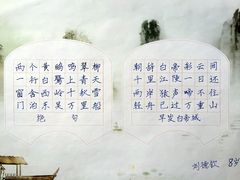 两个黄鹂鸣翠柳
一行白鹭上青天
窗含西岭千秋雪
门泊东吴万里船
绝句
朝辞白帝彩云间
千里江陵一日还
两岸猿声啼不住
轻舟已过万重山
早发白帝城
刘德钦 8岁